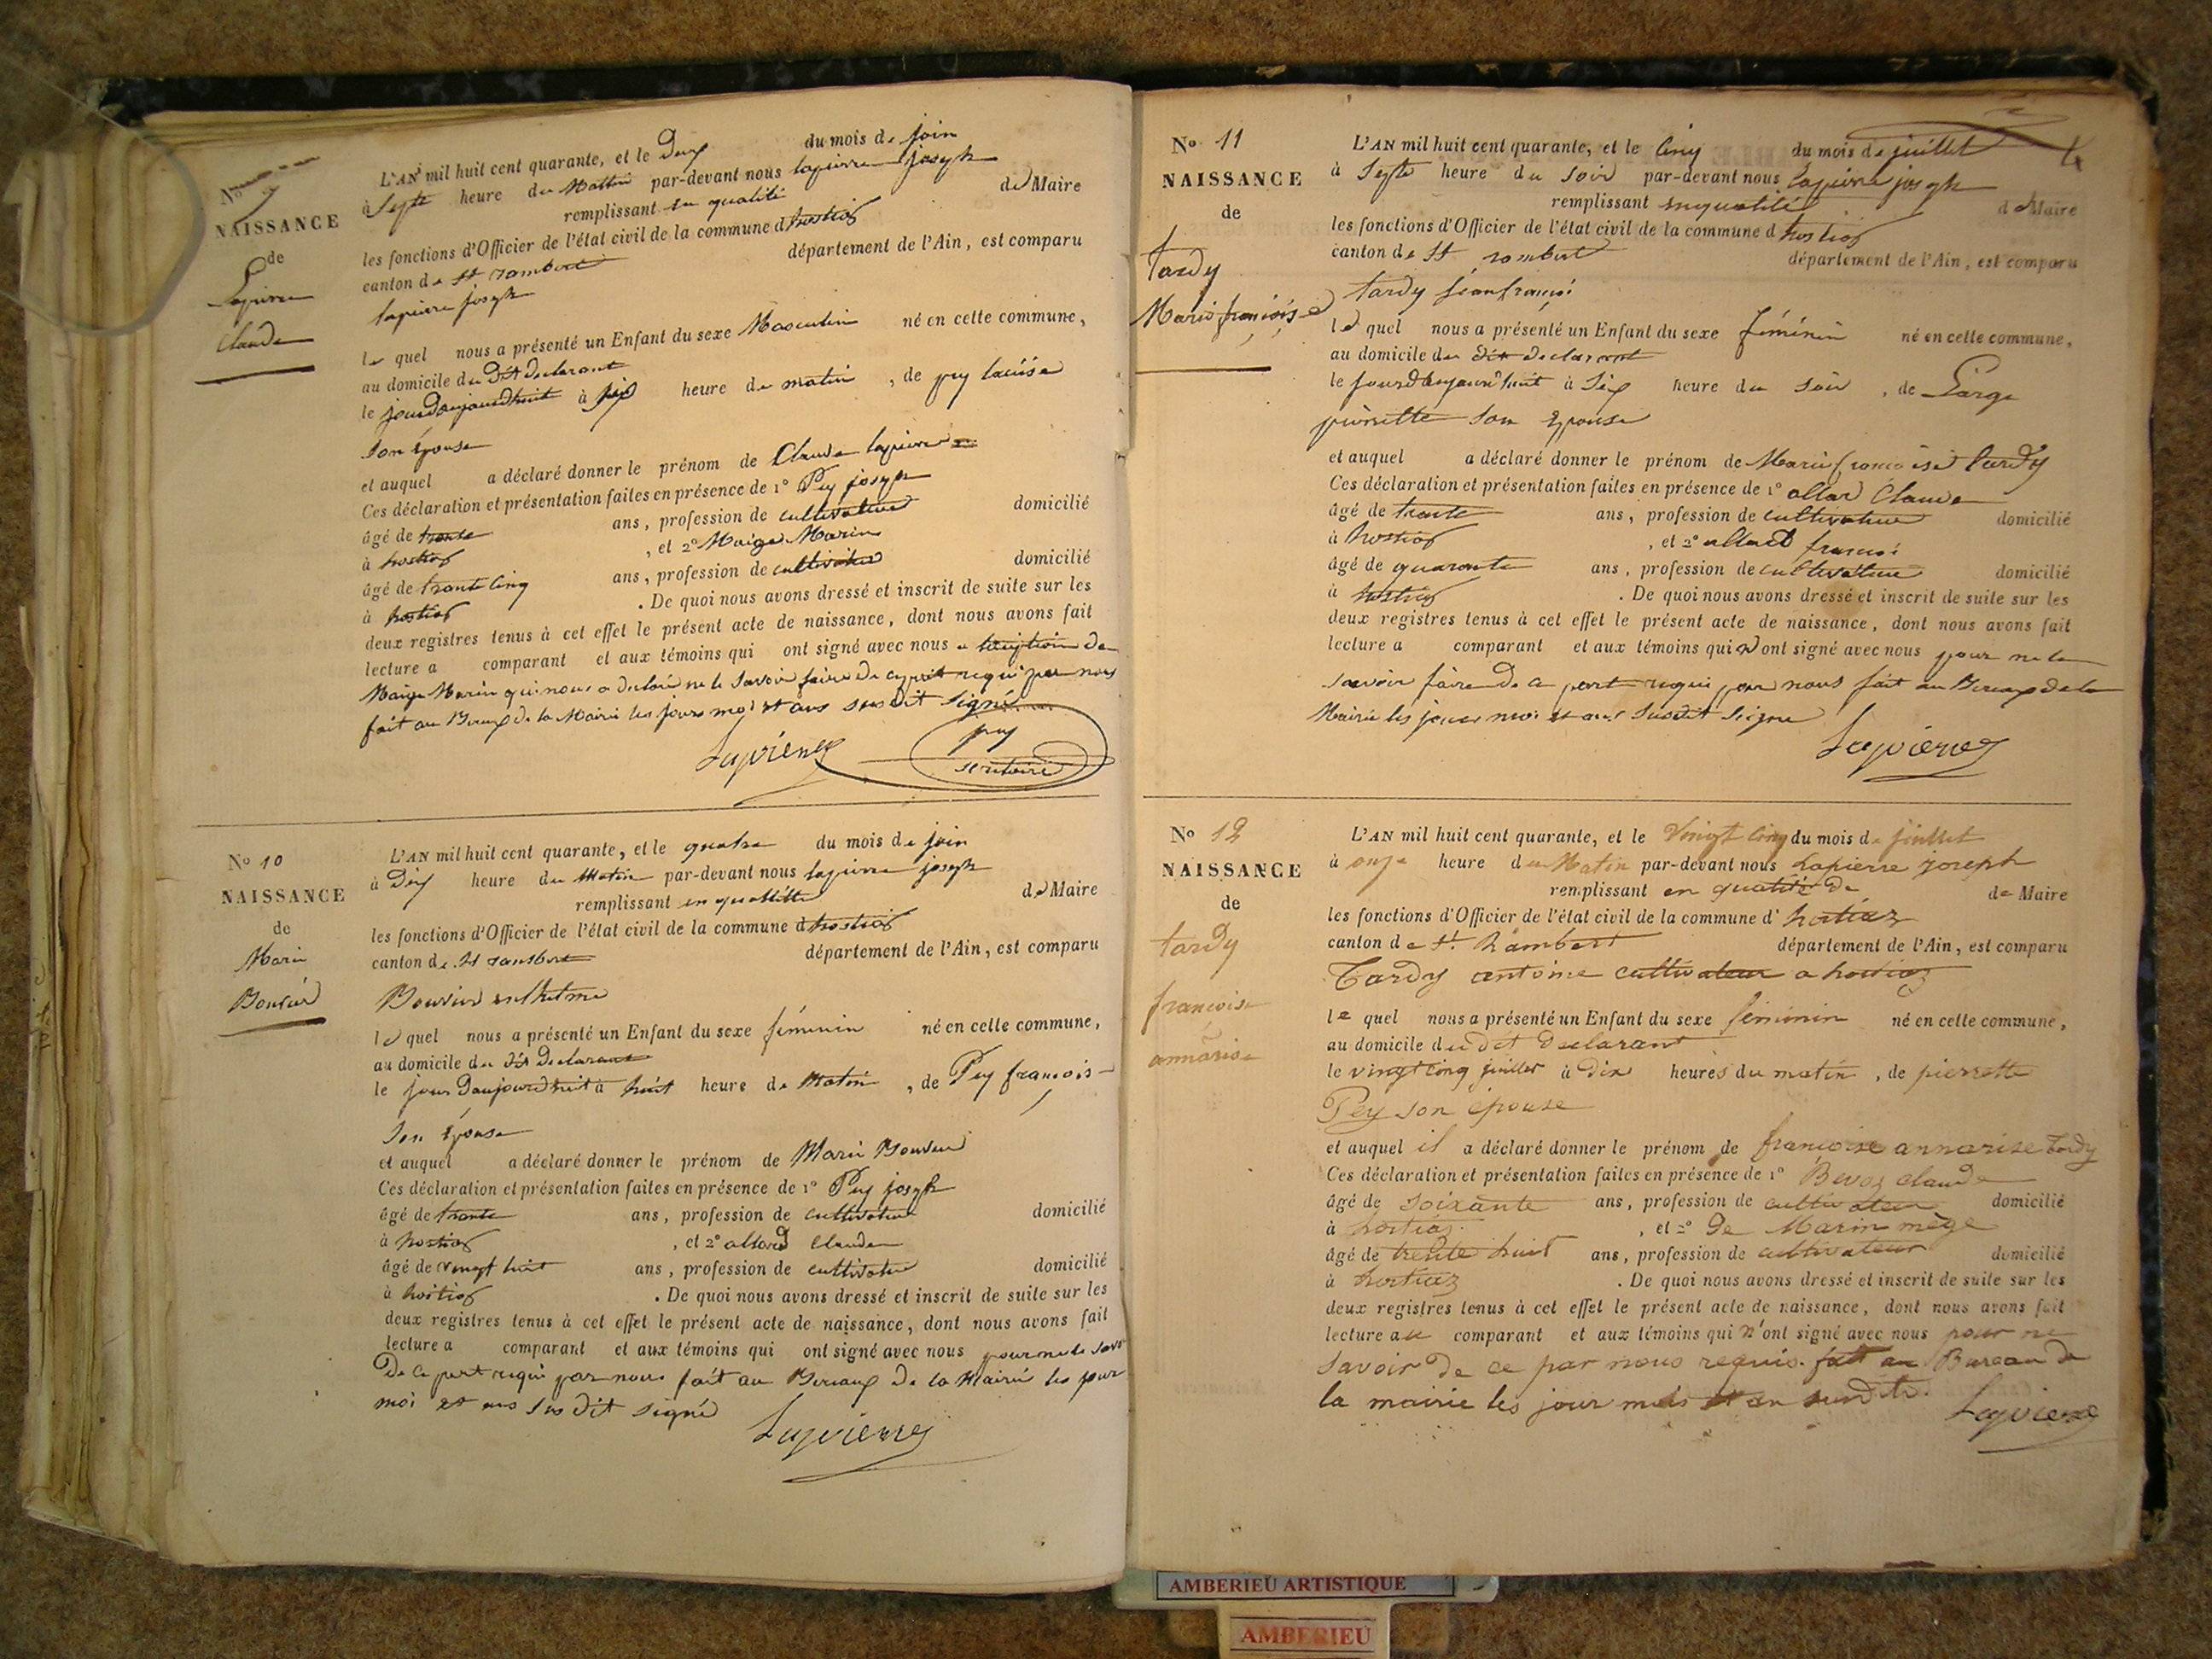 No 9
NAISSANCE
de
Lapierre
Claude
L'AN mil huit cent quarante, et le Deux du mois de join
à Septe heure du Mattin par-devant nous lapierre joseph
remplissant en qualité de Maire
les fonctions d'Officier de l'état civil de la commune d hostiaz
canton de St rambert département de l'Ain, est comparu
lapierre joseph
le quel nous a présenté un Enfant du sexe Masculin né en cette commune,
au domicile du dit declarant
le jourdaujourdhuit à six heure de matin, de pey
son épouse
et auquel a déclaré donner le prénom de Claude lapierre
Ces déclaration et présentation faites en présence de 1° Pey joseph
âgé de trante ans, profession de cultivateur domicilié
à hostiaz, et 2° Maige Marin
âgé de trante cinq ans, profession de cultivateur domicilié
à hostiaz. De quoi nous avons dressé et inscrit de suite sur les
deux registres tenus à cet effet le présent acte de naissance, dont nous avons fait
lecture a comparant et aux témoins qui ont signé avec nous a de
Maige Marin qui nous a declaré ne le savoir faire de requi par nous
fait au de la Mairie les jours moi et ans susdit signé
Lapierre pey
No 10
NAISSANCE
de
Marie
Bouvier
L'AN mil huit cent quarante, et le quatre du mois de join
à Dix heure du Matin par-devant nous lapierre joseph
remplissant en quallitté de Maire
les fonctions d'Officier de l'état civil de la commune d hostiaz
canton de St rambert département de l'Ain, est comparu
Bouvier
le quel nous a présenté un Enfant du sexe féminin né en cette commune,
au domicile du dit declarant
le jour Daujourdhuit à huit heure de Matin, de Pey françois
son épouse
et auquel a déclaré donner le prénom de Marie Bouvier
Ces déclaration et présentation faites en présence de 1° Pey joseph
âgé de trante ans, profession de cultivateur domicilié
à hostiaz, et 2° allard Claude
âgé de vingt huit ans, profession de cultivateur domicilié
à hostiaz. De quoi nous avons dressé et inscrit de suite sur les
deux registres tenus à cet effet le présent acte de naissance, dont nous avons fait
lecture a comparant et aux témoins qui ont signé avec nous pour ne le
De ce part requi par nous fait au De la Mairie les jour
moi et ans susdit signé
Lapierre
No 11
NAISSANCE
de
tardy
Marie françoise
L'AN mil huit cent quarante, et le Cinq du mois de juillet
à Septe heure du Soir par-devant nous lapierre joseph
remplissant enqualité de Maire
les fonctions d'Officier de l'état civil de la commune d hostiaz
canton de St rambert département de l'Ain, est comparu
tardy jean françoi
le quel nous a présenté un Enfant du sexe féminin né en cette commune,
au domicile du dit declarant
le jourdaujourdhuit à Six heure du Soir, de Large
pierrette son Epouse
et auquel a déclaré donner le prénom de Marie françoise tardy
Ces déclaration et présentation faites en présence de 1° allard Claude
âgé de trante ans, profession de cultivateur domicilié
à hostiaz, et 2° allard françoi
âgé de quarante ans, profession de cultivateur domicilié
à hostiaz. De quoi nous avons dressé et inscrit de suite sur les
deux registres tenus à cet effet le présent acte de naissance, dont nous avons fait
lecture a comparant et aux témoins qui n ont signé avec nous pour ne le
savoir faire de ce part requi par nous fait au de la
Mairie les jour moi et ans susdit signé
Lapierre
No 12
NAISSANCE
de
tardy
françoise
annarise
L'AN mil huit cent quarante, et le Vingt Cinq du mois de juillet
à onze heure du Matin par-devant nous Lapierre joseph
remplissant en qualité de de Maire
les fonctions d'Officier de l'état civil de la commune d' hostiaz
canton de St. Rambert département de l'Ain, est comparu
Tardy antoine cultivateur a hostiaz
le quel nous a présenté un Enfant du sexe féminin né en cette commune,
au domicile du dit declarant
le vingt cinq juillet à dix heures du matin, de pierrette
Pey son épouse
et auquel il a déclaré donner le prénom de françoise annarise tardy
Ces déclaration et présentation faites en présence de 1° Bevoz claude
âgé de soixante ans, profession de cultivateur domicilié
à hostiaz, et 2° de Marin mège
âgé de trente huit ans, profession de cultivateur domicilié
à hostiaz. De quoi nous avons dressé et inscrit de suite sur les
deux registres tenus à cet effet le présent acte de naissance, dont nous avons fait
lecture au comparant et aux témoins qui n'ont signé avec nous pour ne
savoir de ce par nous requis. fait au Bureau de
la mairie les jour mois et an susdits.
Lapierre
AMBERIEU ARTISTIQUE
AMBERIEU